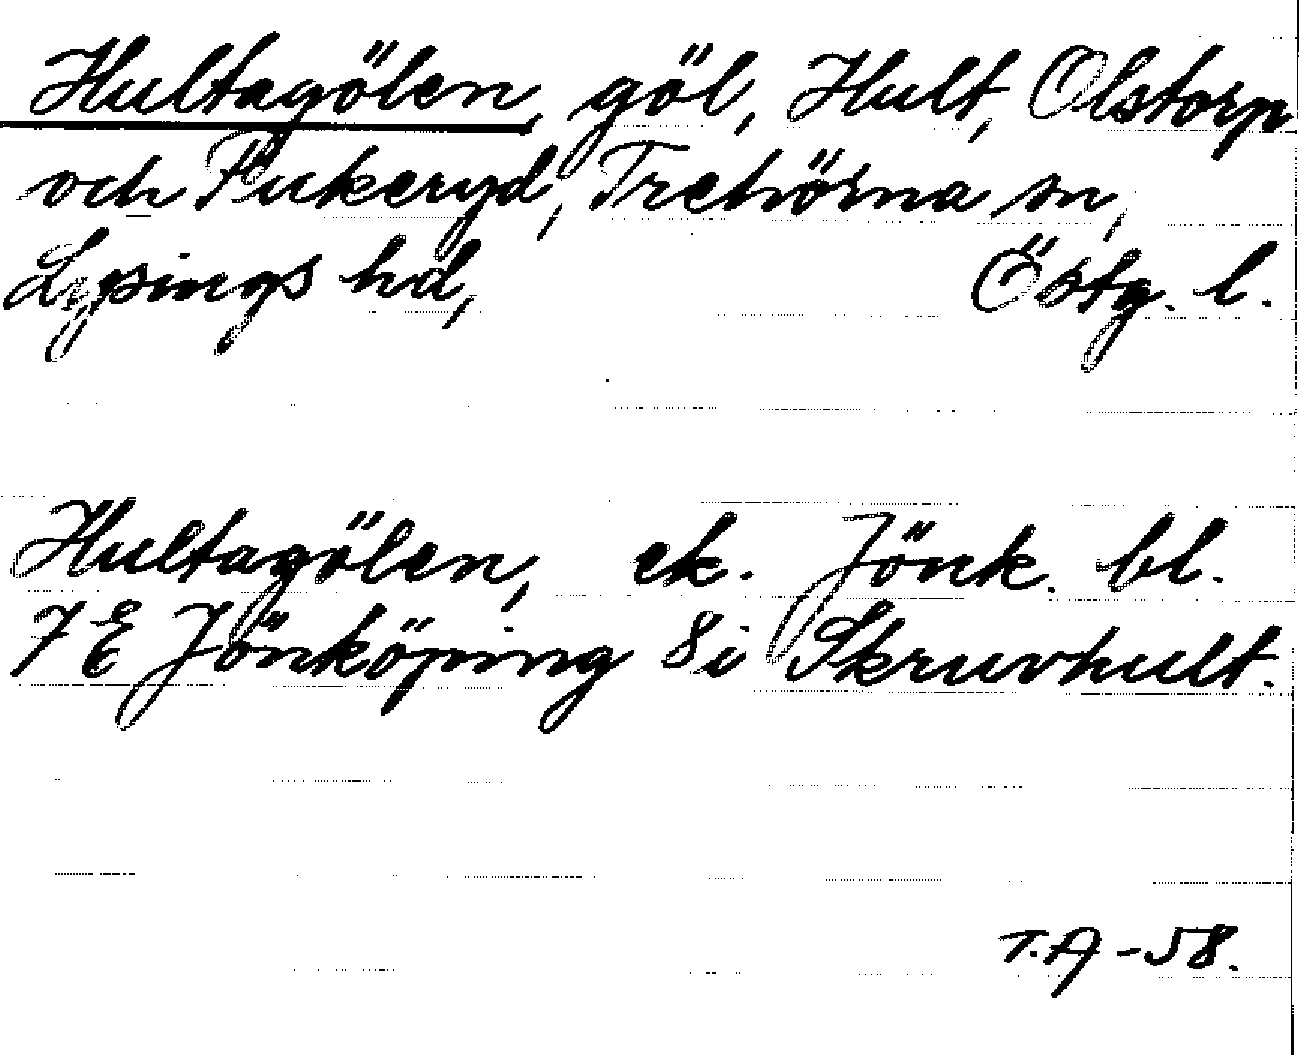 Hultagölen, göl, Hult, Olstorp
och Fukeryd, Trehörna sn,
Lysings hd, Östg. l.
Hultagölen, ek. Jönk. bl.
7 E Jönköping 8i Skruvhult.
T.A -58.